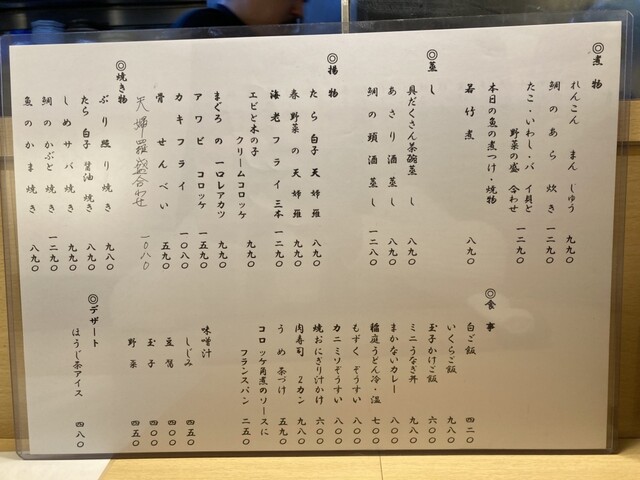 ◎煮物
れんこん まんじゅう 九九〇
鯛のあら 炊き 一二九〇
たこ・いわし・バイ貝と
野菜の盛合わせ 一二九〇
本日の魚の煮つけ・焼物
若竹煮 八九〇
◎蒸し
具だくさん茶碗蒸し 九八〇
あさり酒蒸し 八九〇
鯛の頭酒蒸し 一二八〇
◎揚物
たら白子天婦羅 八九〇
春野菜の天婦羅 九九〇
海老フライ三本 一二九〇
エビと木の子
クリームコロッケ 九九〇
まぐろの一口レアカツ 九九〇
アワビ コロッケ 一五九〇
カキフライ 一〇八〇
骨せんべい 五九〇
天婦羅盛合わせ 一〇八〇
◎焼き物
ぶり照り焼き 九八〇
たら白子 醤油焼き 八九〇
しめサバ焼き 九九〇
鯛のかぶと焼き 一二九〇
魚のかま焼き 八九〇
◎食事
白ご飯 四二〇
いくらご飯 九八〇
玉子かけご飯 六〇〇
ミニうなぎ丼 九八〇
まかないカレー 八〇〇
稲庭うどん冷・温 七〇〇
もずく ぞうすい 八〇〇
カニミソぞうすい 八〇〇
焼おにぎり汁かけ 六〇〇
肉寿司 2カン 九八〇
うめ茶づけ 五九〇
コロッケ角煮のソースに
フランスパン 二五〇
味噌汁
しじみ 四五〇
豆腐 四〇〇
玉子 四〇〇
野菜 四五〇
◎デザート
ほうじ茶アイス 四八〇